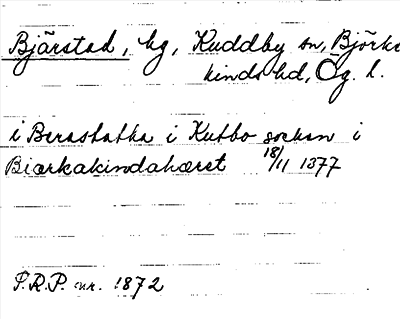 Bjärstad, hg, Kuddby sn, Björke
kinds hd, Ög. l.
i Berastatha i Kutbo sockun i
Biærkakindahæret 18/11 1377
P.R.P. nr. 1872